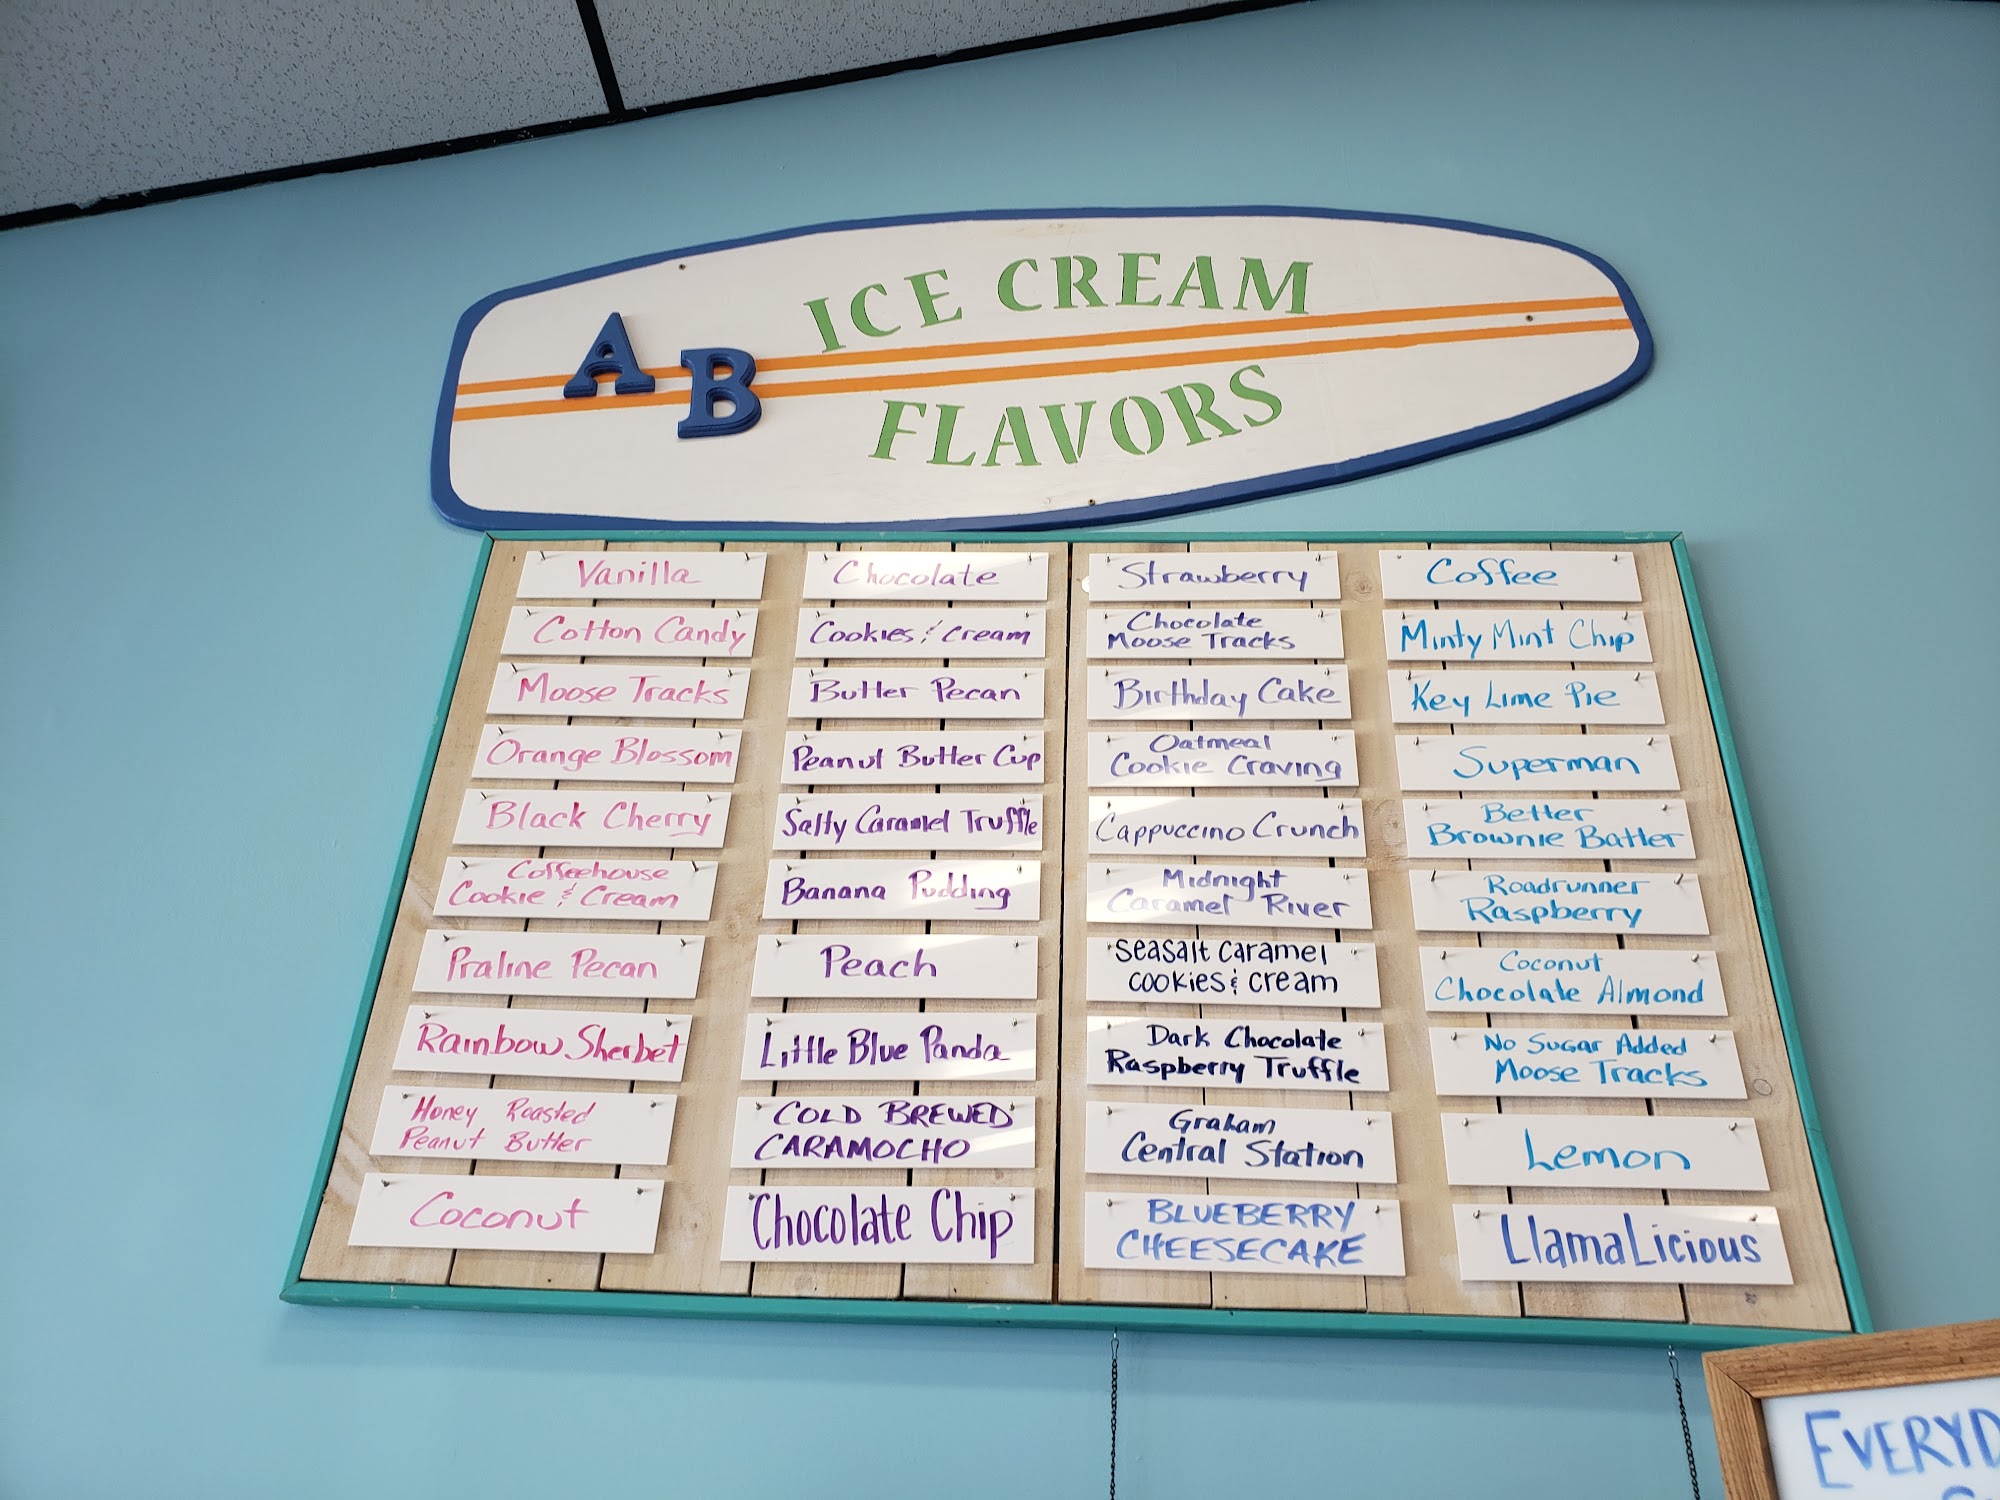 A B
ICE CREAM
FLAVORS
Vanilla
Cotton Candy
Moose Tracks
Orange Blossom
Black Cherry
Coffeehouse
Cookie & Cream
Praline Pecan
Rainbow Sherbet
Honey Roasted
Peanut Butter
Coconut
Chocolate
Cookies & Cream
Butter Pecan
Peanut Butter Cup
Salty Caramel Truffle
Banana Pudding
Peach
Little Blue Panda
COLD BREWED
CARAMOCHO
Chocolate Chip
Strawberry
Chocolate
Moose Tracks
Birthday Cake
Oatmeal
Cookie Craving
Cappuccino Crunch
Midnight
Caramel River
Seasalt Caramel
cookies & cream
Dark Chocolate
Raspberry Truffle
Graham
Central Station
BLUEBERRY
CHEESECAKE
Coffee
Minty Mint Chip
Key Lime Pie
Superman
Better
Brownie Batter
Roadrunner
Raspberry
Coconut
Chocolate Almond
No Sugar Added
Moose Tracks
Lemon
LlamaLicious
EVERYD